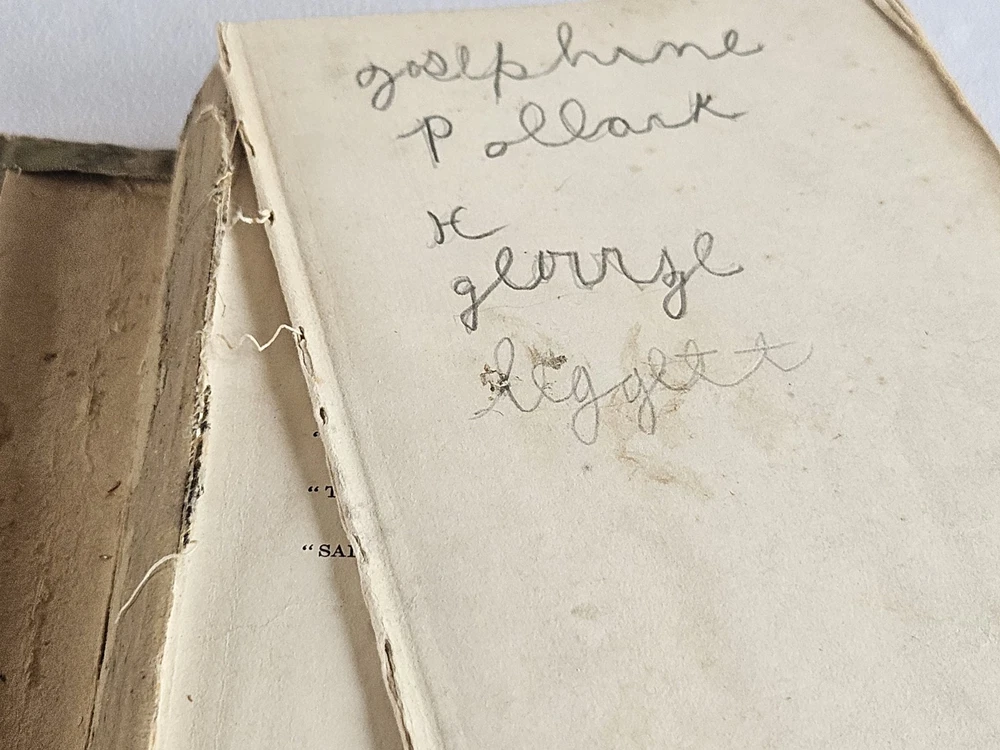 Josephine
Pollark
george
liggett
"T
"SAI